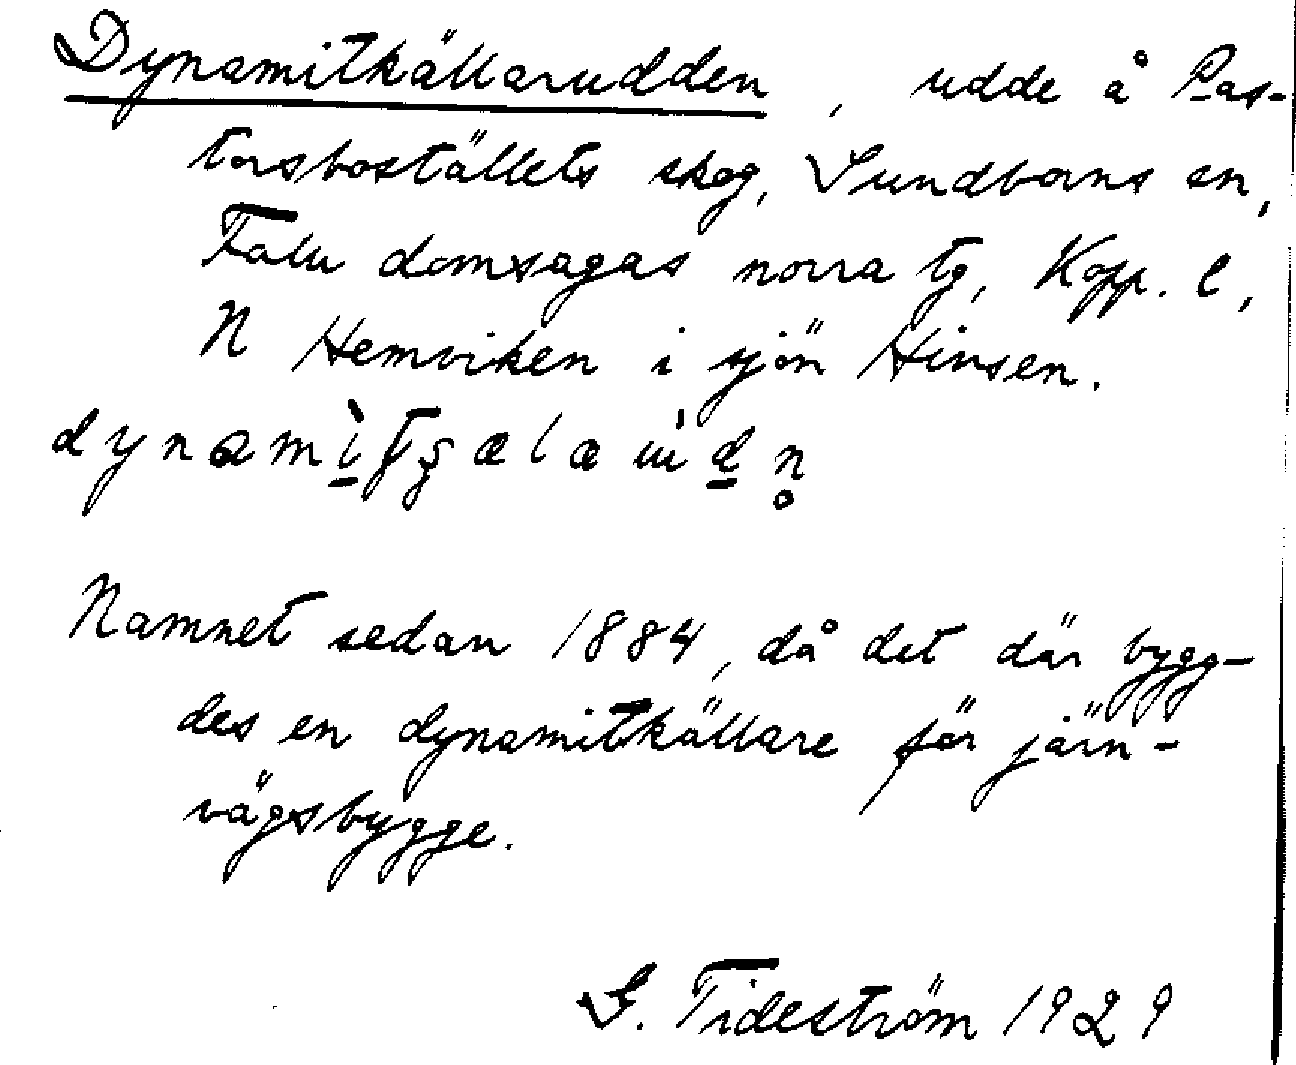 Dynamitkällarudden, udde å Pas-
torsbostället skog, Sundborns sn,
Falu domsagas norra tg, Kopp. l,
N Hemviken i sjön Hinsen.
Namnet sedan 1884, då det där bygg-
des en dynamitkällare för järn-
vägsbygge.
G. Tideström 1929